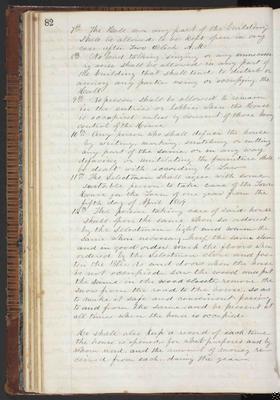 82
7th The Hall nor any part of the building
shall be allowed to be kept open in any
case after Two O'clock A.M.
8th No loud talking, singing or any unnecessary
noise shall be allowed in any part of
the building that shall tend to disturb or
annoy any parties using or occupying the
Hall.
9th No person shall be allowed to remain
in the entries or lobbies when the House
is occupied unless by consent of those having
control of the House.
10th Any person who shall deface the house
by writing, marking, scratching, or cutting
any part of the same or in any way
defacing or mutilating the furniture shall
be dealt with according to Law.
11th The Selectmen shall agree with some
suitable person to take care of the Town
House in the Town of one year from the
fifth day of April
12th The person taking care of said house
shall open the same when so ordered
by the Selectmen light and warm the
same when necessary, keep the same clean
and in good order, wash the floors when
ordered by the Selectmen close and fasten
the blinds and doors when the house
is not occupied saw the wood and put
the same in the wood closet, remove the
snow from the road to the house, so as
to make it safe and convenient passing
to and from the same and be present at
all times when the house is occupied.
He shall also keep a record of each time
the house is opened for what purposes and by
whom used and the amount of money received
from each, during the year.